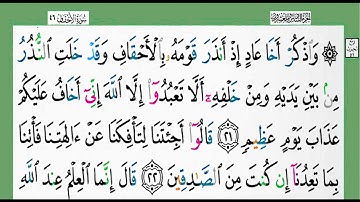 سورة الأحقاف ٤٦
۞ وَاذْكُرْ أَخَا عَادٍ إِذْ أَنذَرَ قَوْمَهُۥ بِالْأَحْقَافِ وَقَدْ خَلَتِ النُّذُرُ
مِنۢ بَيْنِ يَدَيْهِ وَمِنْ خَلْفِهِۦٓ أَلَّا تَعْبُدُوٓا۟ إِلَّا اللَّهَ إِنِّىٓ أَخَافُ عَلَيْكُمْ
عَذَابَ يَوْمٍ عَظِيمٍ ٢١ قَالُوٓا۟ أَجِئْتَنَا لِتَأْفِكَنَا عَنْ ءَالِهَتِنَا فَأْتِنَا
بِمَا تَعِدُنَآ إِن كُنتَ مِنَ الصَّٰدِقِينَ ٢٢ قَالَ إِنَّمَا الْعِلْمُ عِندَ اللَّهِ